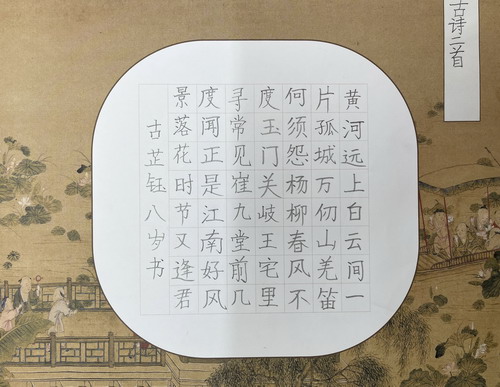 古诗二首
黄河远上白云间一
片孤城万仞山羌笛
何须怨杨柳春风不
度玉门关岐王宅里
寻常见崔九堂前几
度闻正是江南好风
景落花时节又逢君
古芷钰八岁书